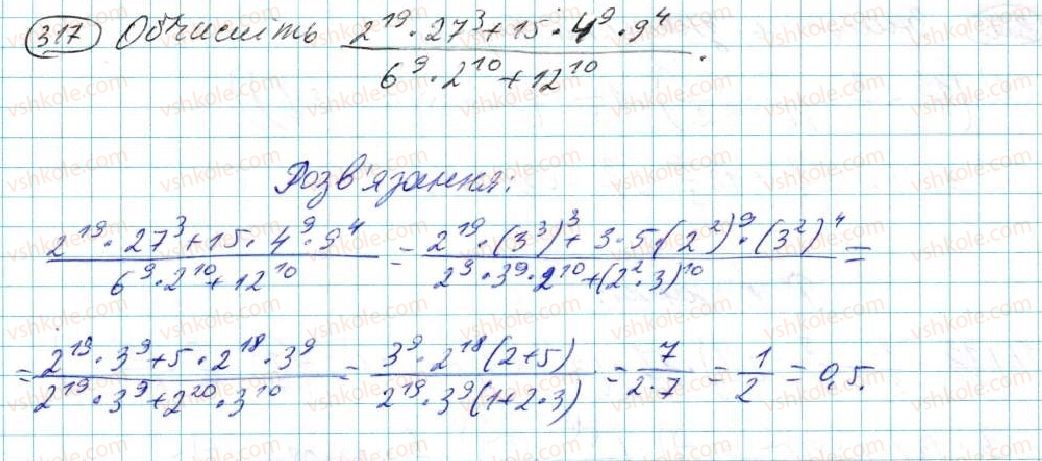 317 Обчисліть (2^19·27^3+15·4^9·9^4)/(6^9·2^10+12^10).
Розв'язання:
(2^19·27^3+15·4^9·9^4)/(6^9·2^10+12^10) = (2^19·(3^3)^3+3·5·(2^2)^9·(3^2)^4)/(2^9·3^9·2^10+(2^2·3)^10) =
= (2^19·3^9+5·2^18·3^9)/(2^19·3^9+2^20·3^10) = (3^9·2^18(2+5))/(2^19·3^9(1+2·3)) = 7/(2·7) = 1/2 = 0,5.